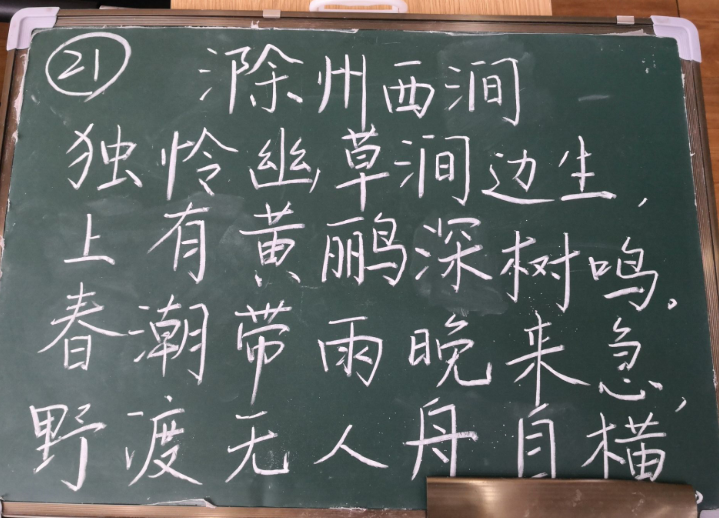 21 滁州西涧
独怜幽草涧边生,
上有黄鹂深树鸣。
春潮带雨晚来急,
野渡无人舟自横